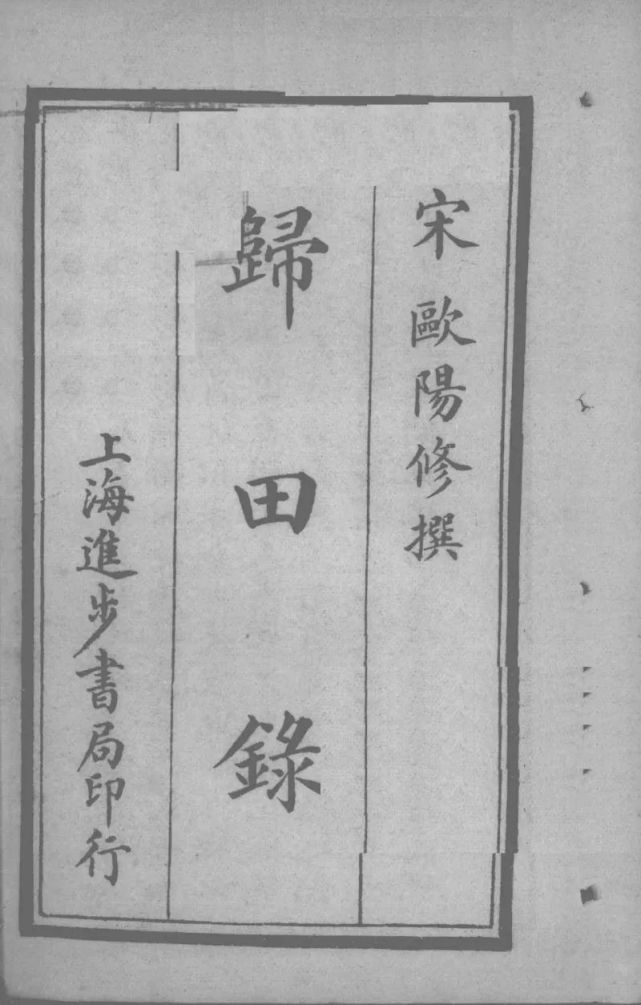 宋 歐陽修撰
歸田錄
上海進步書局印行